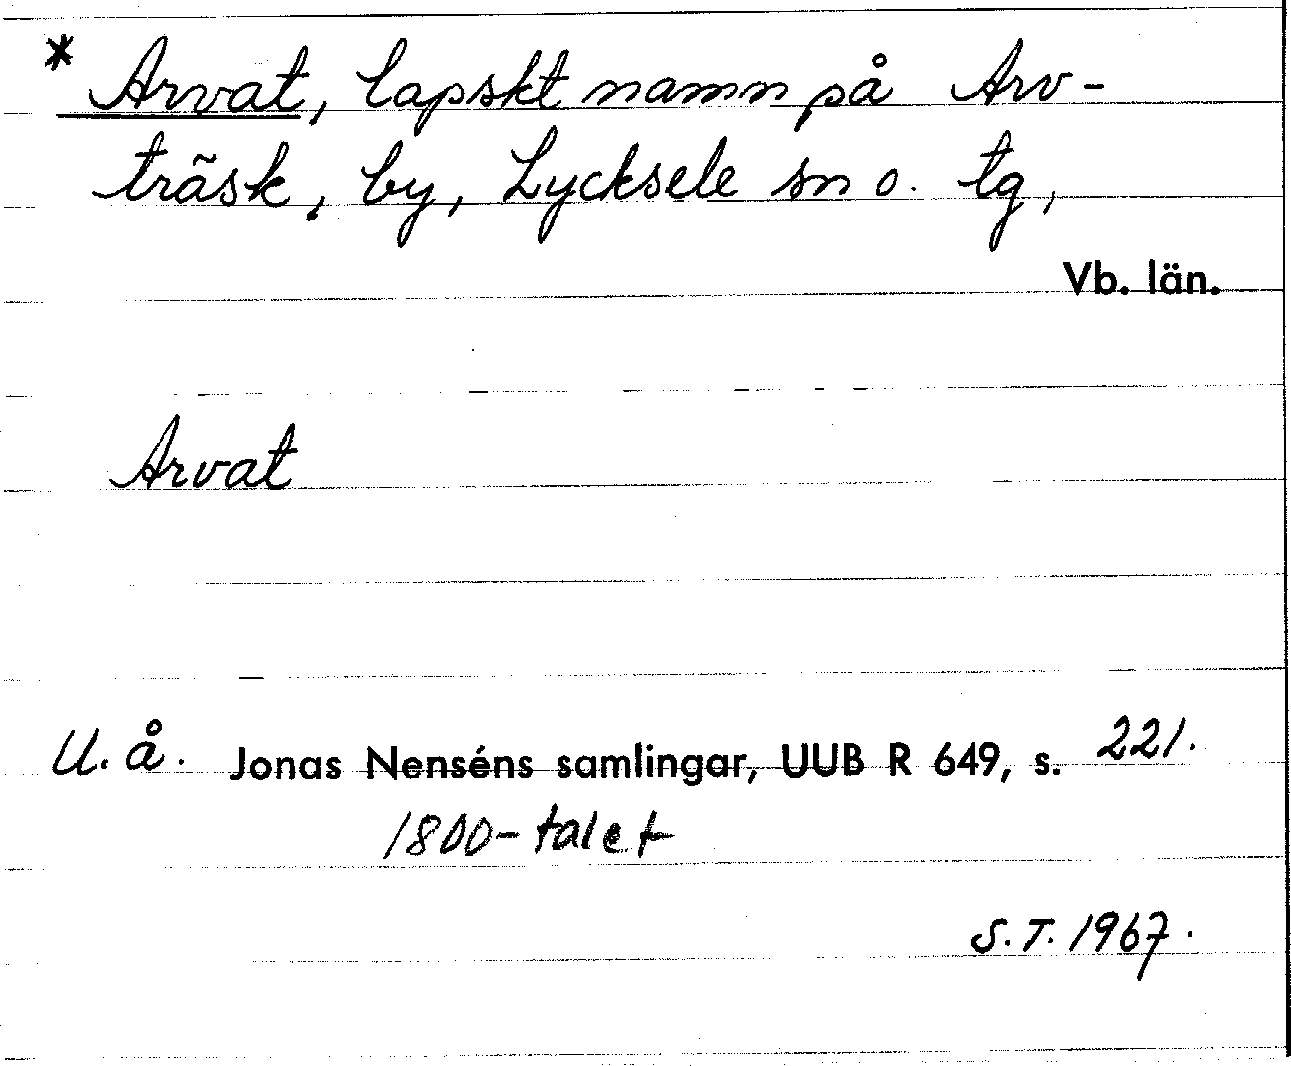 * Arvat, lapskt namn på Arv-
träsk, by, Lycksele sn o. tg,
Vb. län.
Arvat
U. å. Jonas Nenséns samlingar, UUB R 649, s. 221.
1800-talet
S.T. 1967.